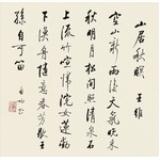 山居秋暝 王維
空山新雨後天氣晚來
秋明月松間照清泉石
上流竹喧歸浣女蓮動
下漁舟隨意春芳歇王
孫自可留